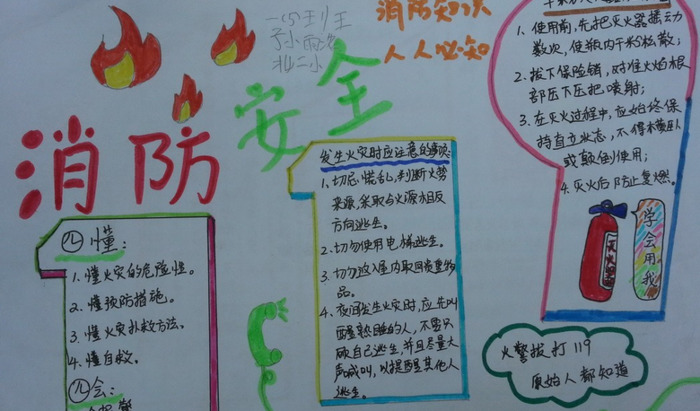 消防安全
消防知识
人人必知
四懂：
1. 懂火灾的危险性。
2. 懂预防措施。
3. 懂火灾扑救方法。
4. 懂自救。
四会：
发生火灾时应注意的事项：
1. 切忌慌乱，判断火势
来源，采取与火源相反
方向逃生。
2. 切勿使用电梯逃生。
3. 切勿返入屋内取回贵重物
品。
4. 夜间发生火灾时，应先叫
醒熟睡的人，不要只
顾自己逃生，并且尽量大
声喊叫，以提醒其他人
逃生。
1. 使用前，先把灭火器摇动
数次，使瓶内干粉松散；
2. 拔下保险销，对准火焰根
部压下压把喷射；
3. 在灭火过程中，应始终保
持直立状态，不得横卧
或颠倒使用；
4. 灭火后防止复燃。
灭火器
学会用我
火警拔打119
原始人都知道